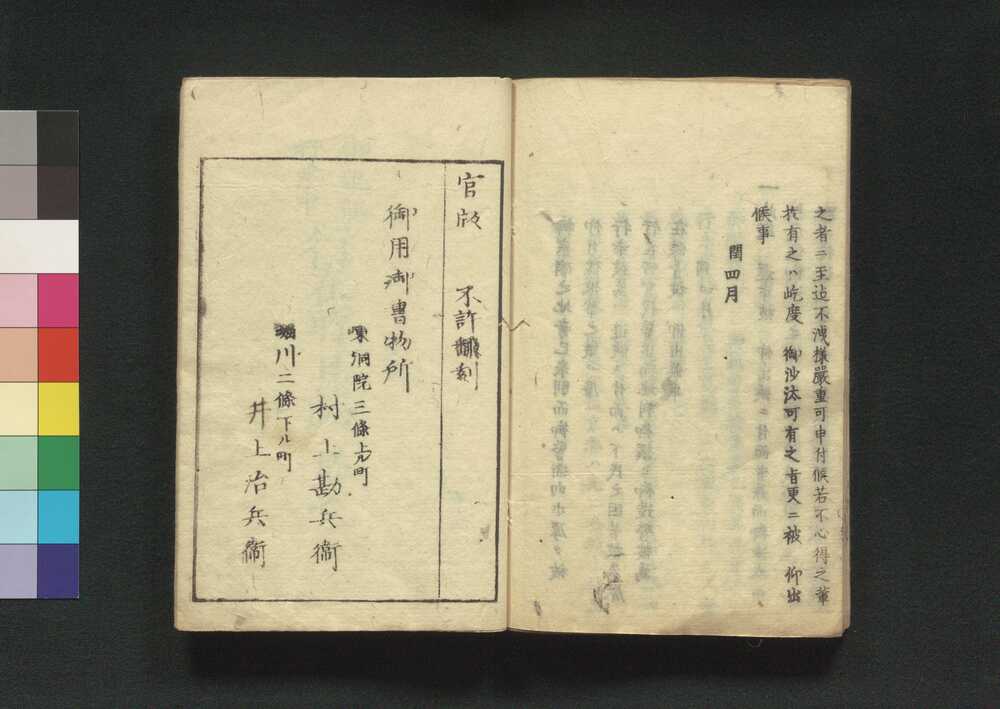 之者ニ至迠不洩様嚴重可申付候若不心得之輩
於有之ハ屹度 御沙汰可有之旨更ニ被 仰出
候事
閏四月
官版 不許翻刻
御用御書物所
東洞院三條上ル町
村上勘兵衞
堀川二條下ル町
井上治兵衞